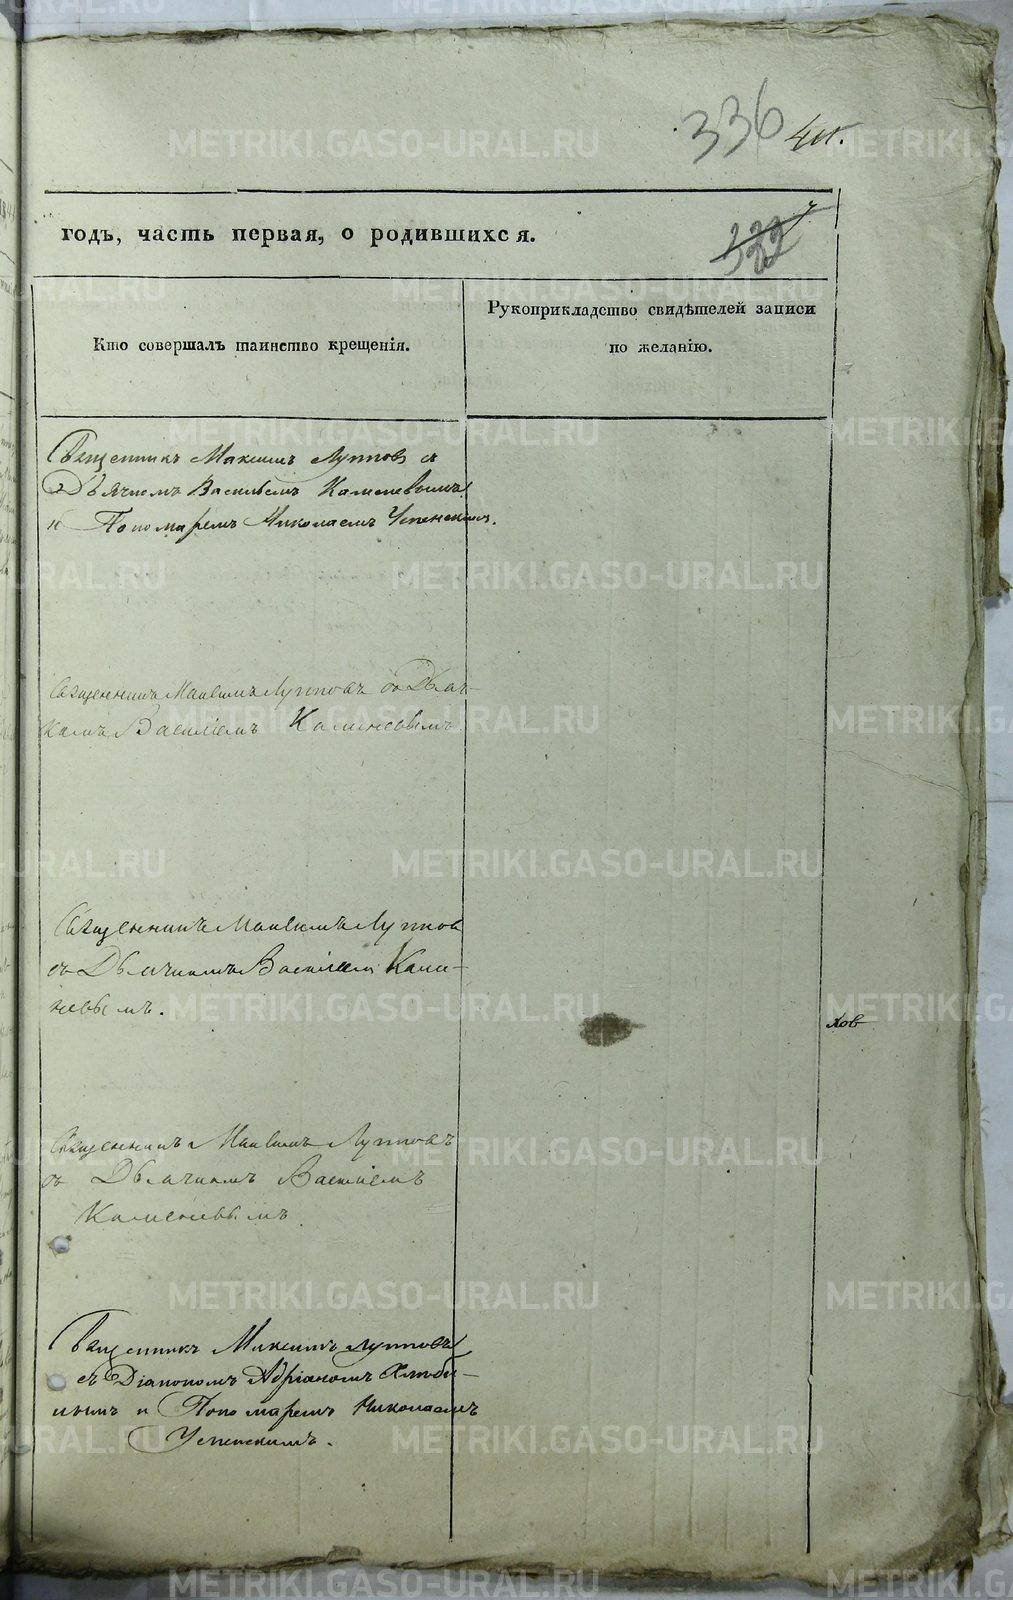 336
годъ, часть первая, о родившихся.
322
Кто совершалъ таинство крещенія.
Рукоприкладство свидѣтелей записи
по желанію.
Священникъ Максимъ Луппов съ
Дьячкомъ Васильемъ Каменевымъ
и Пономаремъ Николаемъ Успенскимъ.
Священникъ Максимъ Лупповъ съ Дьяч-
комъ Василіемъ Каменевымъ
Священникъ Максимъ Луппов
съ Дьячкомъ Василіем Каме-
невымъ.
ков
Священникъ Максимъ Лупповъ
съ Дьячкомъ Василіемъ
Каменевымъ
Священникъ Максимъ Лупповъ
съ Діакономъ Адріаномъ
и Пономаремъ Николаемъ
Успенскимъ.
METRIKI.GASO-URAL.RU